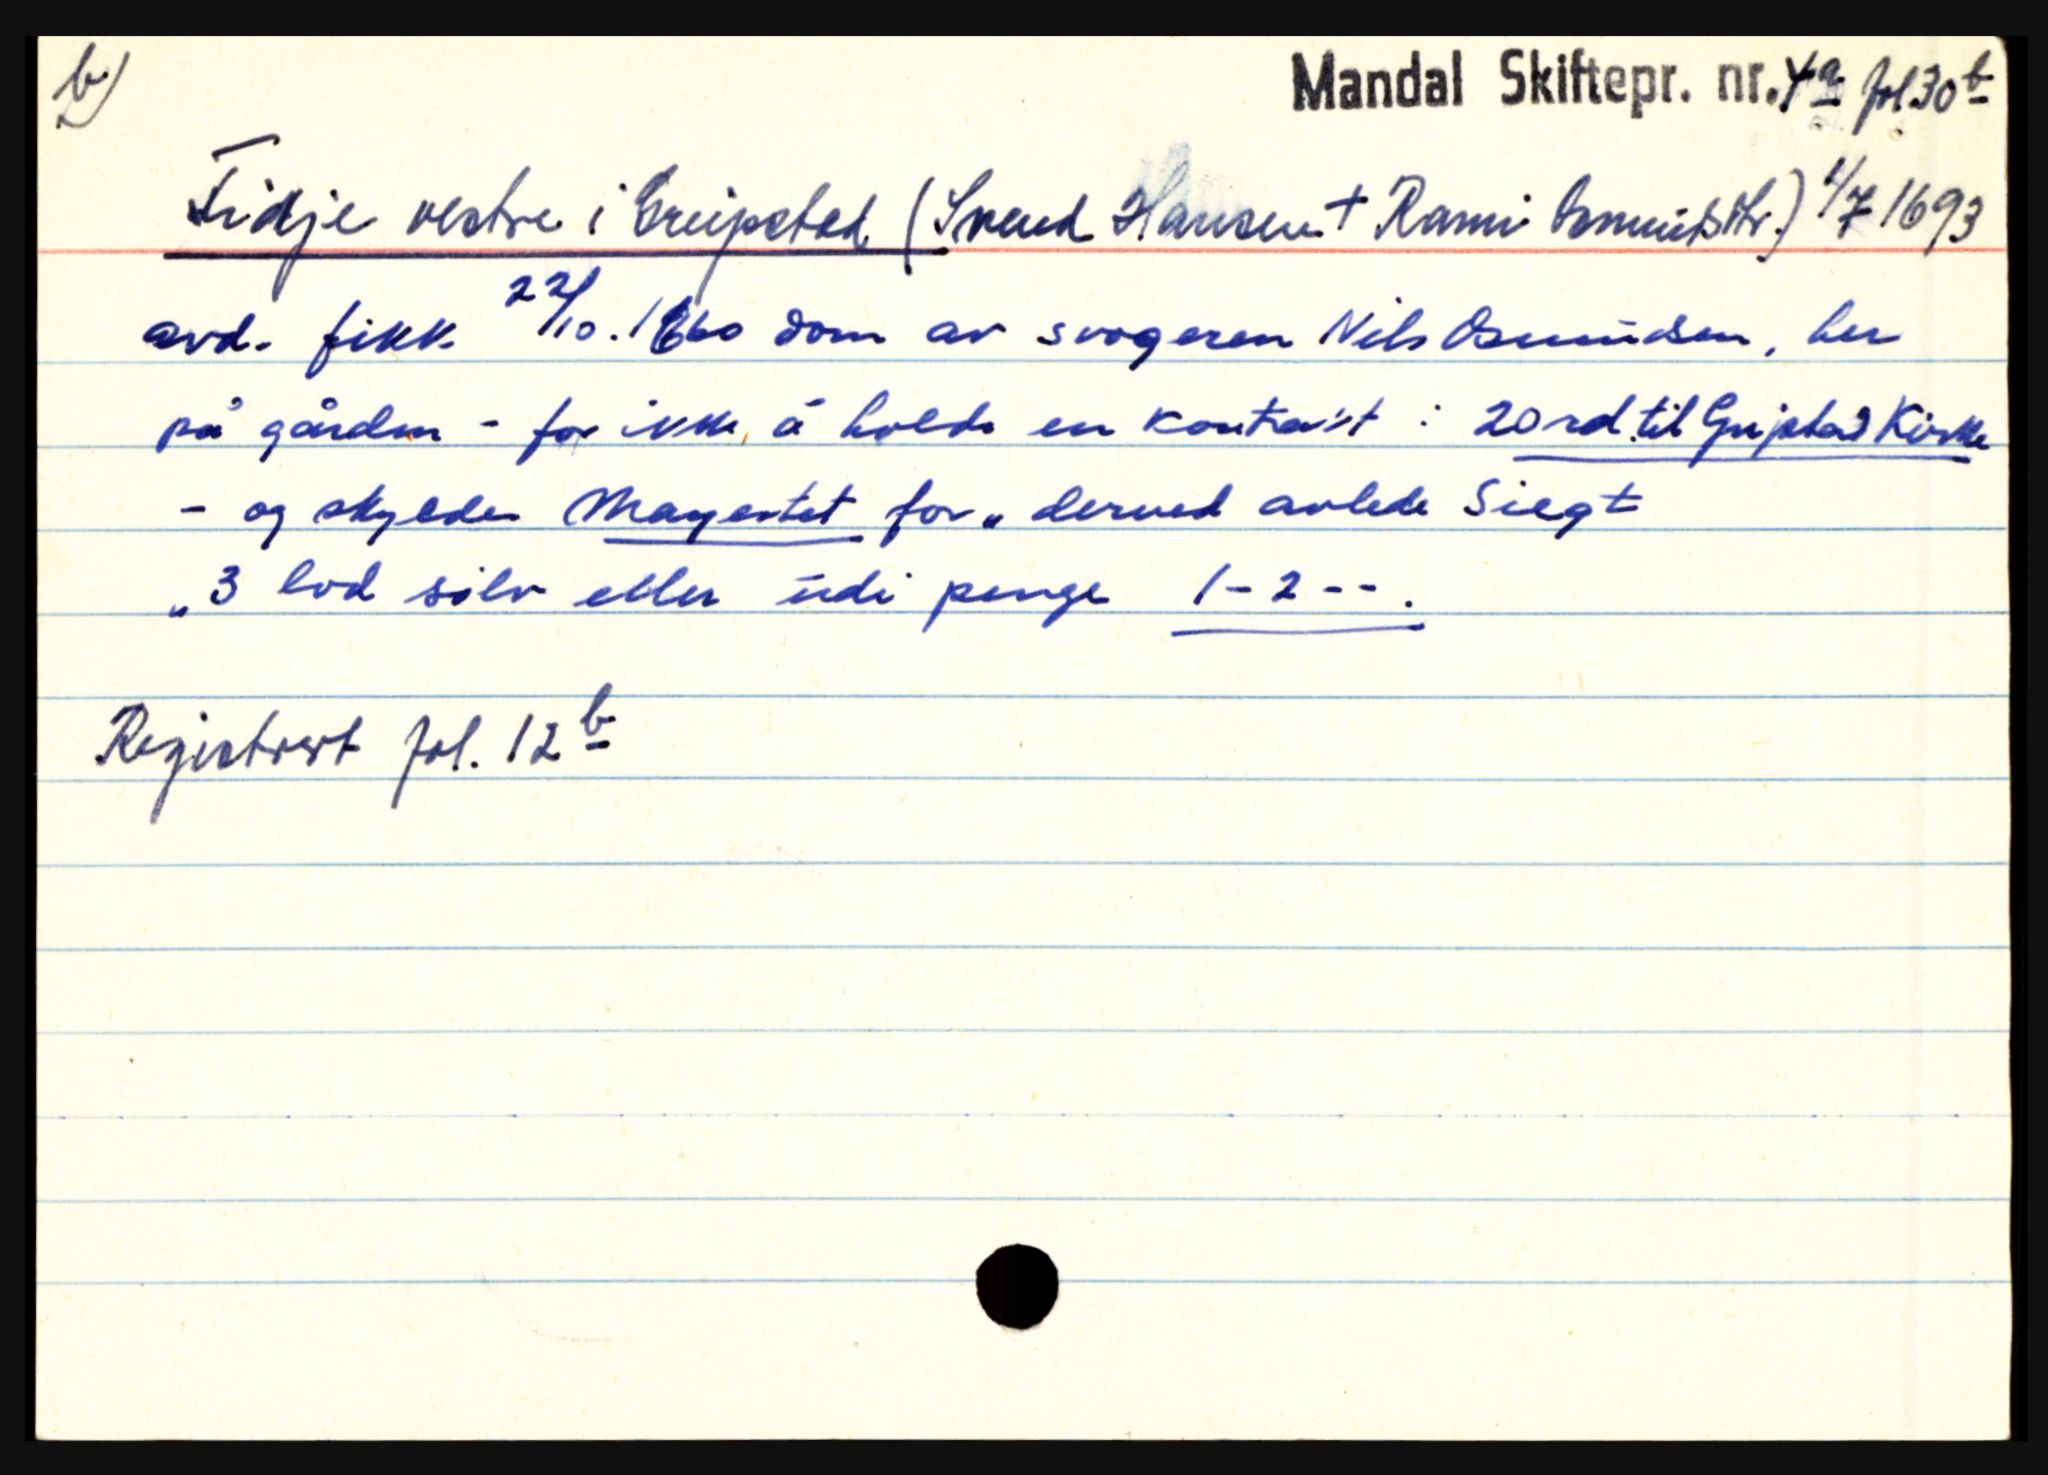 b)
Mandal Skiftepr. nr. 4a fol 30b
Fidje vestre i Greipstad (Svend Hansen + Ranni Osmundsdtr.) 4/7 1693
avd. fikk 22/10. 1660 dom av svogeren Nils Osmundsen, her
på gården - for ikke å holde en kontrakt : 20 rd. til Gripstad Kirke
- og skylder Mayestet for „ derved avlede Siegt
„ 3 lod sølv eller udi penge 1-2--.
Registrert fol. 12b